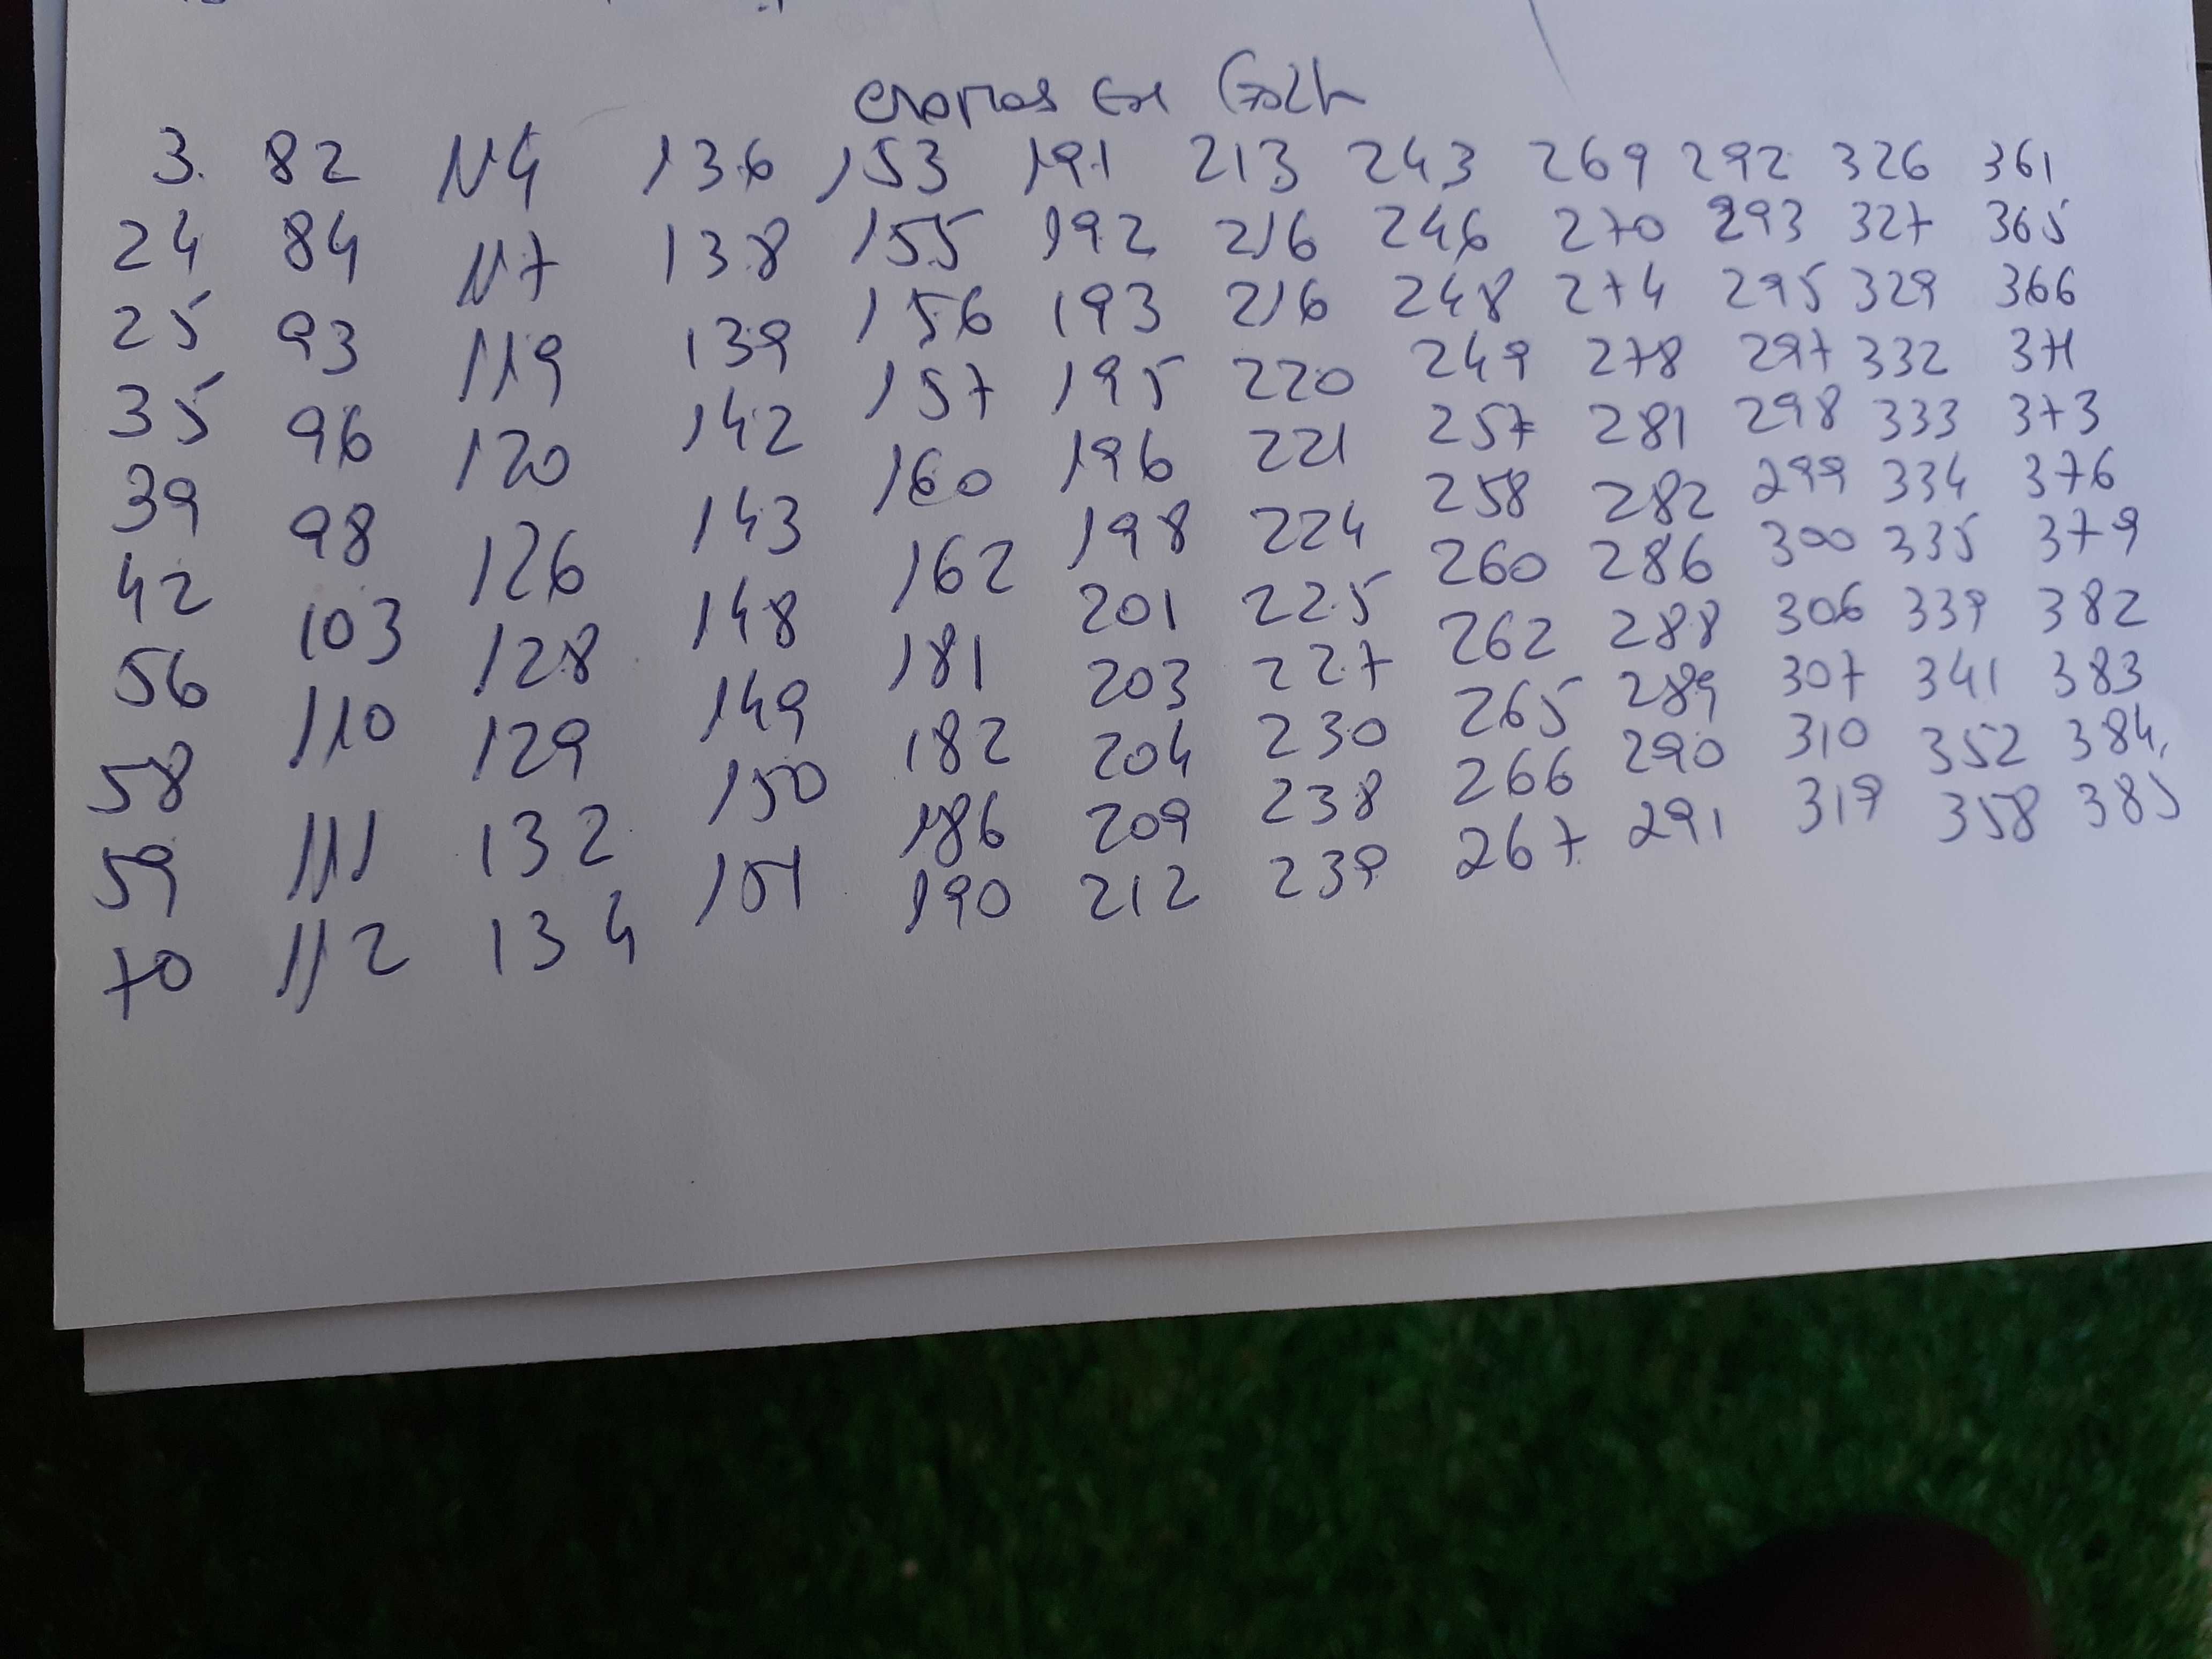 3. 82 114 136 153 191 213 243 269 292 326 361
24 84 117 138 155 192 216 246 270 293 327 365
25 93 119 139 156 193 216 248 274 295 329 366
35 96 120 142 157 195 220 249 278 297 332 371
39 98 126 143 160 196 221 257 281 298 333 373
42 103 128 148 162 198 224 258 282 299 334 376
56 110 129 149 181 201 225 260 286 300 335 379
58 111 132 150 182 203 227 262 288 306 339 382
59 112 134 151 186 204 230 265 289 307 341 383
70 190 209 238 266 290 310 352 384,
212 239 267 291 319 358 385